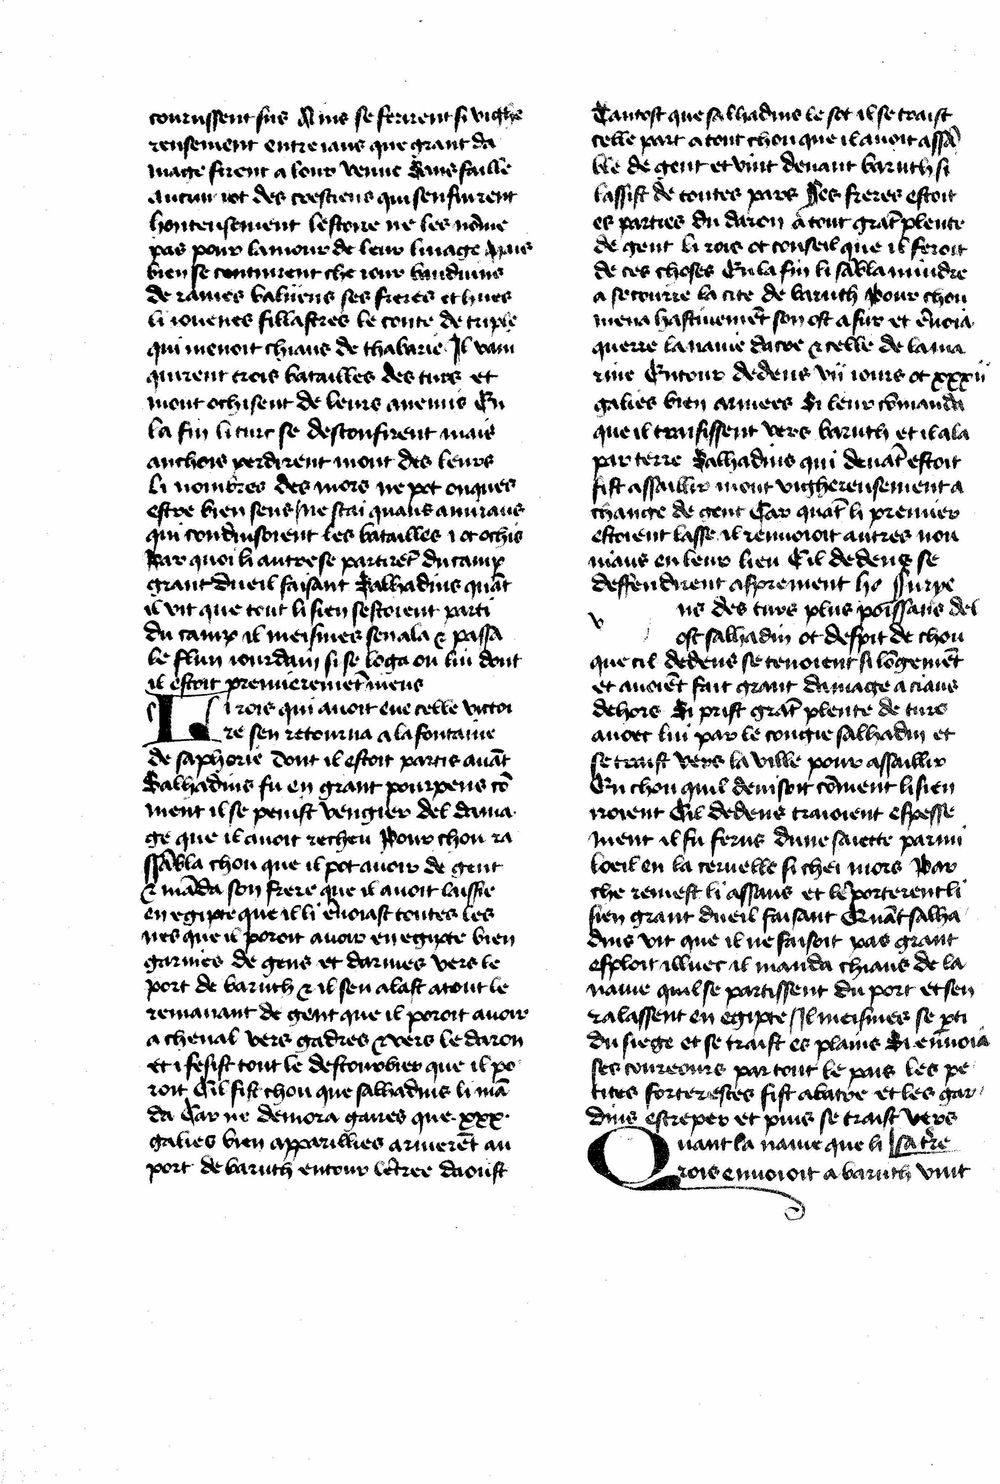 courussent sus Ains se ferirent si vighe
reusement entre iaus que grant da
mage firent a lour venue Sans faille
aucun i ot des crestiens qui senfuirent
honteusement lestoire ne les nōme
pas pour lamour de leur linage Mais
bien se continrent che iour bauduins
de rames balyiens ses freres et hues
li iouenes fillastres le conte de triple
qui menoit chiaus de thabarie Il vain
quirent trois batailles des turs et
mont ochisent de leurs anemis En
la fin li turc se desconfirent mais
anchois perdirent mont des leurs
Li nombres des mors ne pot onques
estre bien seus Ne stai quans amiraus
qui conduisoient les batailles i ot ochis
Par quoi li autre se partirēt du camp
grant dueil faisant Salhadins quāt
il vit que tout li sien sestoient parti
du camp il meismes sen ala & passa
le flun iourdain si se loga ou liu dont
il estoit premieremēt meus
Li rois qui auoit eue celle victoi
re sen retourna a la fontaine
de saphorie Dont il estoit partis auāt
Salhadins fu en grant pourpens cō
ment il se peuist vengier del dama
ge que il auoit recheu Pour chou ra
ssābla chou que il pot auoir de gent
& māda son frere que il auoit laissie
en egipte que il li ēuoiast toutes les
nes que il poroit auoir en egipte bien
garnies de gens et darmes vers le
port de baruth & il sen alast a tout le
remanant de gent que il poroit auoir
a cheual vers gadres & vers le daron
et i fesist tout le destourbier que il po
roit Cil fist chou que salhadins li mā
da Car ne demora gaires que .xxx.
galies bien apparillies ariuerēt au
port de baruth entour lētree daoust
Tantost que salhadins le sot il se traist
celle part a tout chou que il auoit assā
ble de gent et vint deuant baruth si
lassist de toutes pars Ses freres estoit
es parties du daron a tout grāt plente
de gent Li rois ot conseil que il feroit
de ces choses En la fin li sābla mindre
a secourre la cite de baruth Pour chou
mena hastiuemēt son ost a sur et ēuoia
querre la nauie dacre & celle de la ma
rine Entour dedens vii iours ot xxxii
galies bien armees Si leur cōmanda
que il traisissent vers baruth et il ala
par terre Salhadins qui deuāt estoit
fist assaillir mout vighereusement a
change de gent Car quāt li premier
estoient lasse il renuoioit autres nou
niaus en leur lieu Cil dedens se
deffendirent asprement ho Surye
ns des turs plus poissans del
v
ost salhadin ot despit de chou
que cil dedens se tenoient si lōgemēt
et auoiēt fait grant damage a ciaus
dehors Si prist grāt plente de turs
auoec lui par le congie salhadin et
se traist vers la ville pour assaillir
En chou quil deuisoit cōment li sien
iroient Cil dedens traioient espesse
ment il fu ferus dune saiette parmi
loeil en la ceruelle si chei mors Par
che remest li assaus et lē porterent li
sien grant dueil faisant Quāt salha
dins vit que il ne faisoit pas grant
esploit illuec il manda chiaus de la
nauie quil se partissent du port et sen
ralassent en egipte Il meismes se pti
du siege et se traist es plains Si enuoia
ses coureours par tout le pais les pe
tites forterestes fist abatre et les gar
dins estreper et puis se traist vers
Quant la nauie que li
rois enuoioit a baruth vint